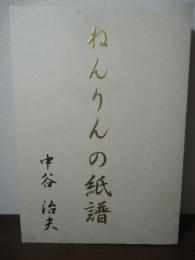 ねんりんの紙譜
中谷治夫